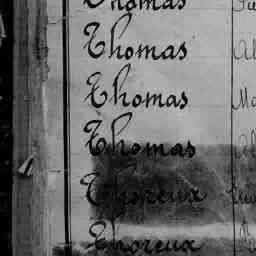 Thomas
Thomas
Thomas
Thomas
Thoreux
Thoreux